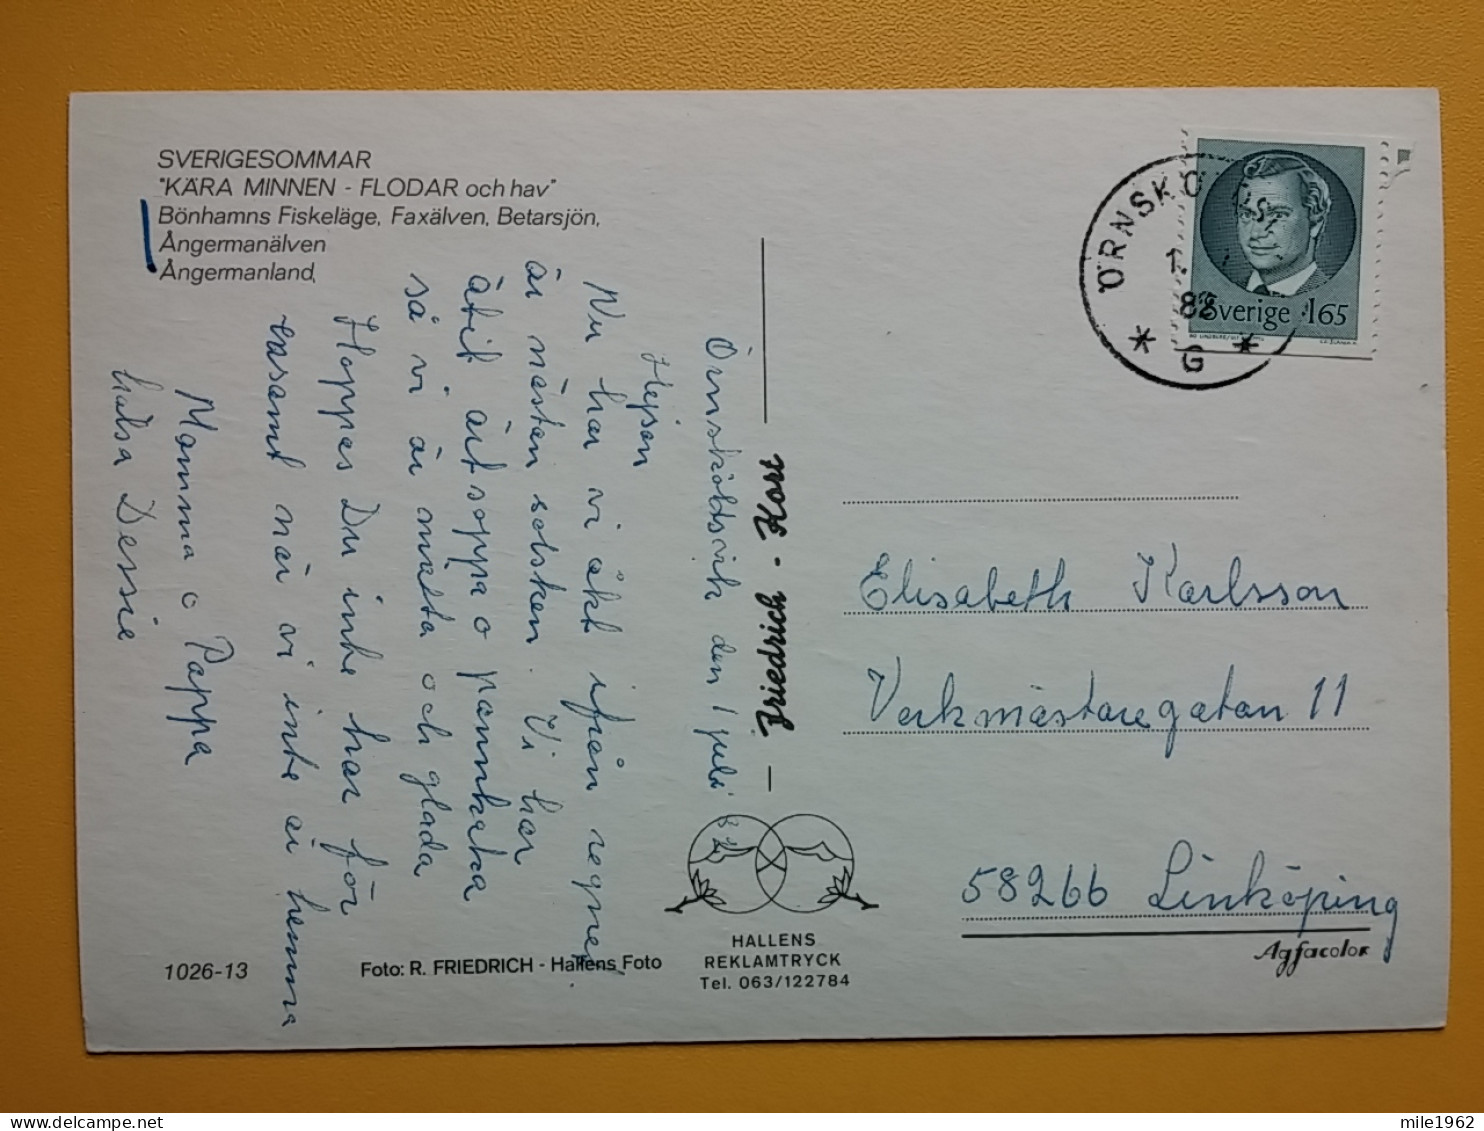 SVERIGESOMMAR
"KÄRA MINNEN - FLODAR och hav"
Bönhamns Fiskeläge, Faxälven, Betarsjön,
Ångermanälven
Ångermanland,
Örnsköldsvik den 1 juli 82
Hejsan
Nu har vi åkt ifrån regnet.
är nästan solsken. Vi har
ätit ärtsoppa o pannkaka
så vi är mätta och glada
Hoppas Du inte har för
ensamt när vi inte är hemma
Mamma o Pappa
hälsa Dessie
1026-13
Foto: R. FRIEDRICH - Hallens Foto
Friedrich - Kort
HALLENS
REKLAMTRYCK
Tel. 063/122784
ÖRNSKÖ
1.
82
* G *
Sverige 165
Elisabeth Karlsson
Verkmästaregatan 11
58266 Linköping
Agfacolor
mile1962